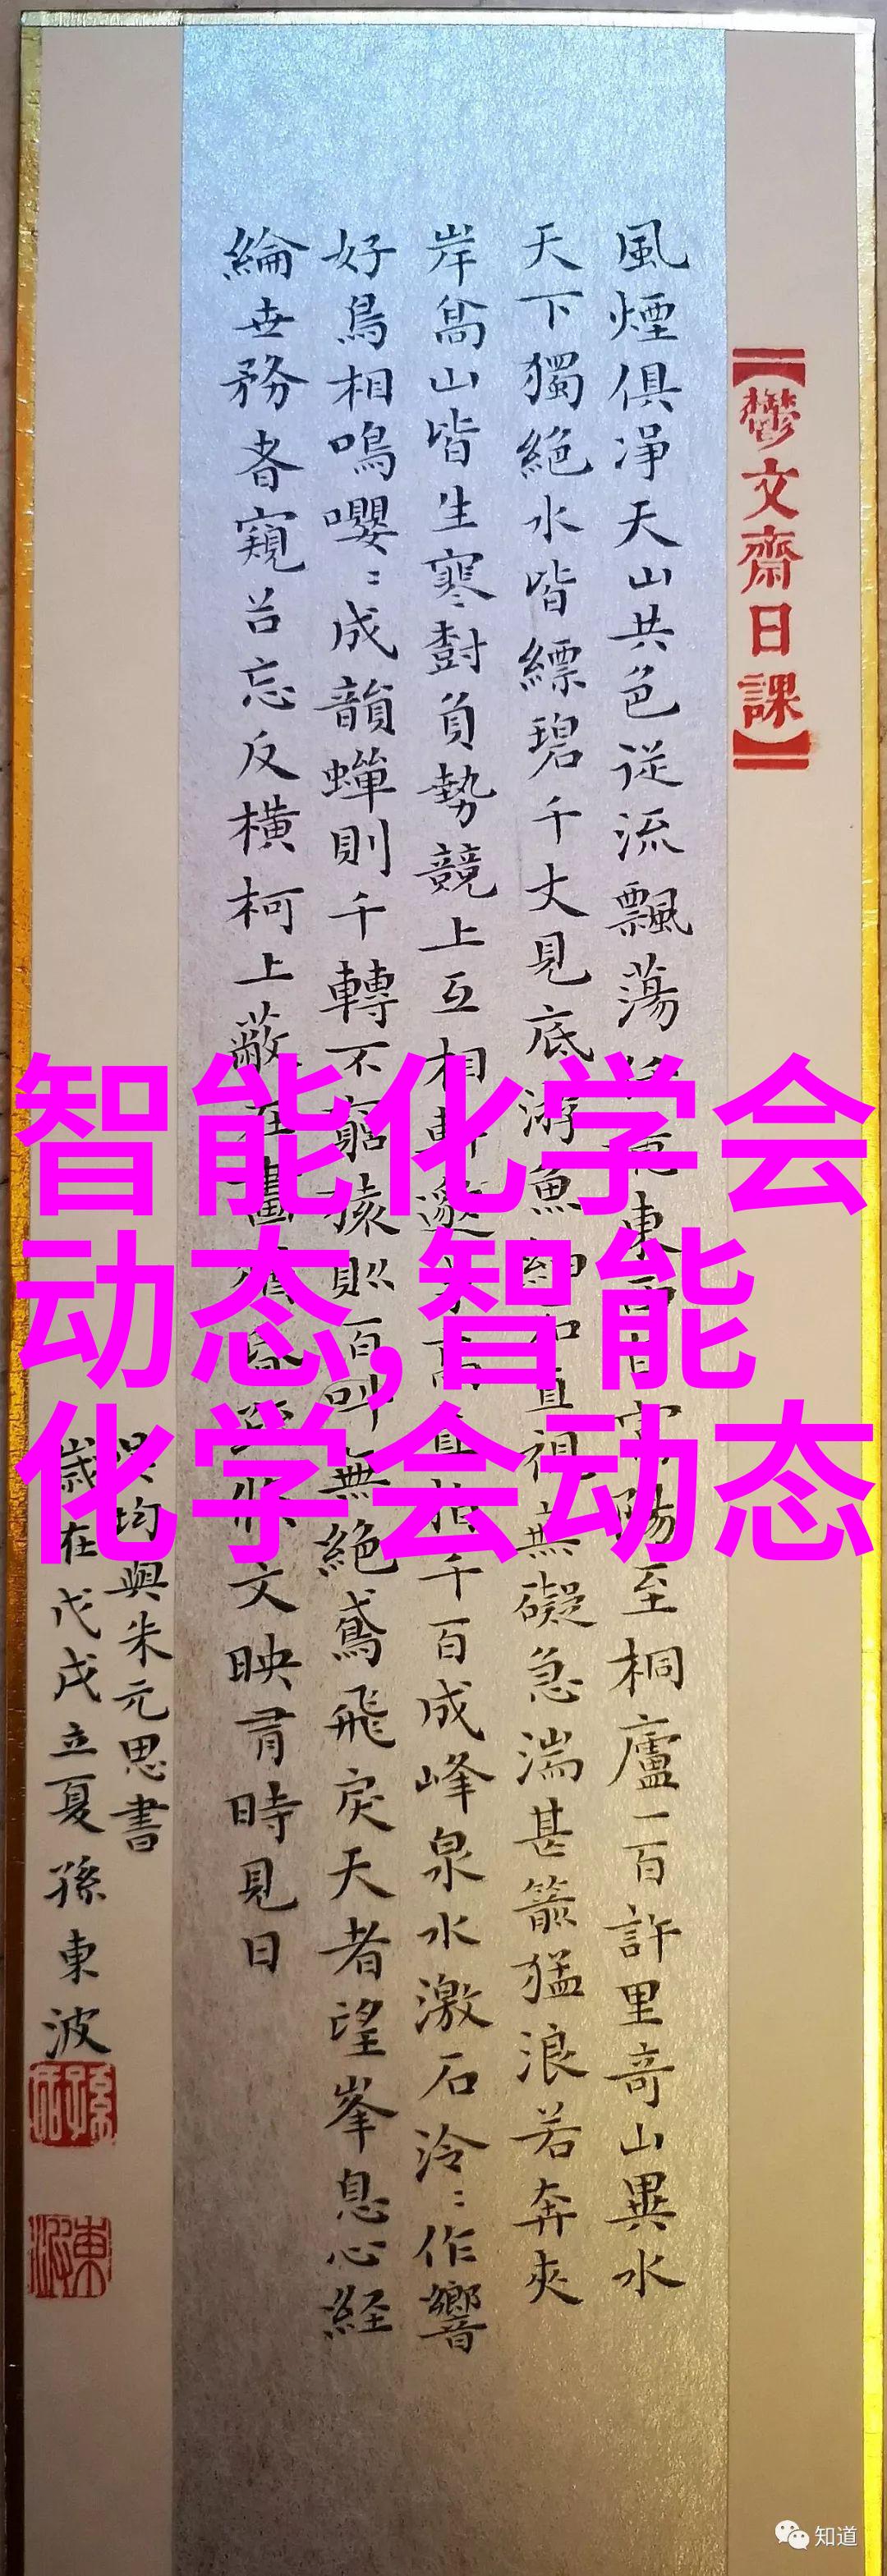 欝文齋日課
風煙俱淨天山共色從流飄蕩東陽至桐廬一百許里奇山異水
天下獨絕水皆縹碧千丈見底游魚細直視無礙急湍甚箭猛浪若奔夾
岸高山皆生寒樹負勢競上互相邈高直指千百成峰泉水激石泠〻作響
好鳥相鳴嚶〻成韻蟬則千轉不窮猿則百叫無絕鳶飛戾天者望峯息心經
綸世務者窺谷忘反橫柯上蔽在晝文映有時見日
均與朱元思書
歲在戊戌立夏孫東波
智能化学会
动态,智能
化学会动态
知道